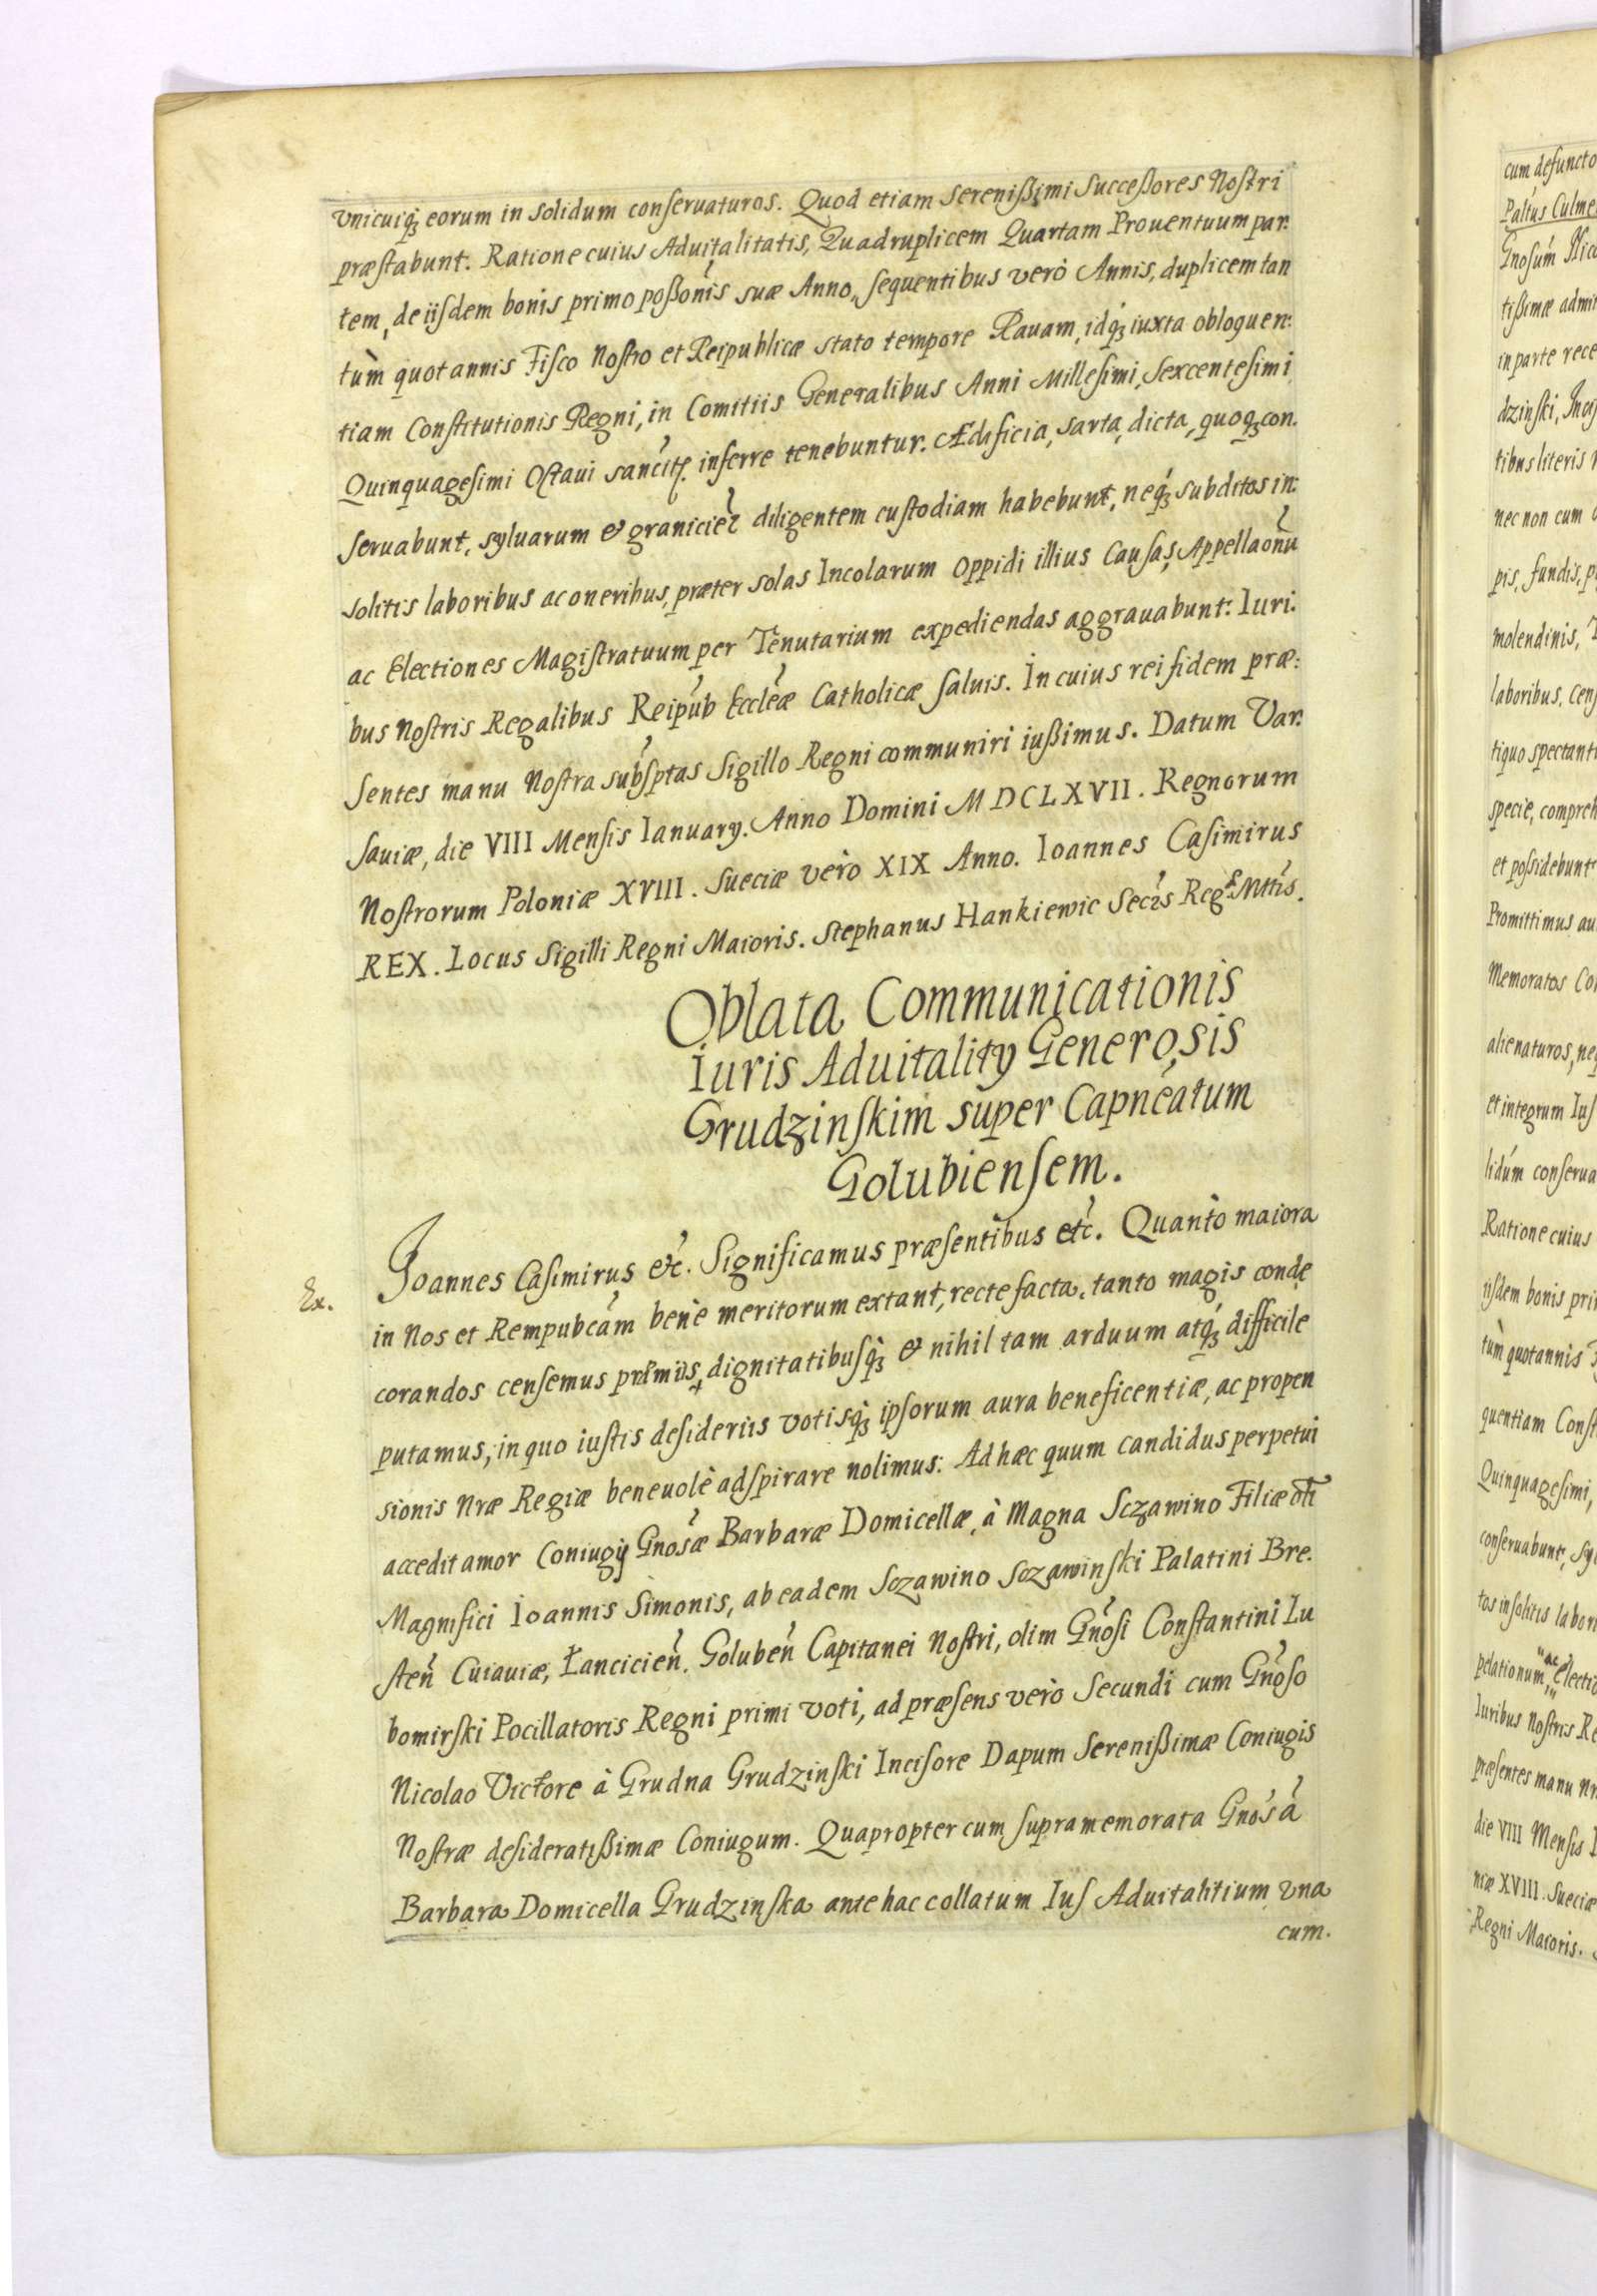 vnicuiq3 eorum in solidum conseruaturos. Quod etiam Serenißimi Succeßores Nostri
præstabunt. Ratione cuius Aduitalitatis, Quadruplicem Quartam Prouentuum par:
tem, de iisdem bonis primo poßonis suæ Anno, sequentibus verò Annis, duplicem tan
tùm quotannis Fisco Nostro et Reipublicæ stato tempore Rauam, idq3 iuxta obloquen:
tiam Constitutionis Regni, in Comitiis Generalibus Anni Millesimi, Sexcentesimi
Quinquagesimi Octaui sancitę inferre tenebuntur. Ædificia, sarta, dicta, quoq3 con.
seruabunt, syluarum & granicier diligentem custodiam habebunt, neq3 subditos in:
solitis laboribus ac oneribus, præter solas Incolarum Oppidi illius Causas, Appellaonu
ac Electiones Magistratuum per Tenutarium expediendas aggrauabunt: Iuri.
bus Nostris Regalibus Reipub Eccleæ Catholicæ saluis. In cuius rei fidem præ:
sentes manu Nostra subsptas Sigillo Regni communiri iußimus. Datum Var:
sauiæ, die VIII Mensis Ianuary. Anno Domini MDCLXVII. Regnorum
Nostrorum Poloniæ XVIII. Sueciæ verò XIX Anno. Ioannes Casimirus
REX. Locus Sigilli Regni Maioris. Stephanus Hankiewic Secrs Reg Mttis.
Oblata Communicationis
Iuris Aduitality Generosis
Grudzinskim super Capneatum
Golubiensem.
Ex.
Joannes Casimirus etc. Significamus præsentibus etc. Quantò maiora
in Nos et Rempubcam benè meritorum extant, recte facta, tanto magis conde
corandos censemus præmiis, dignitatibusq3 & nihil tam arduum atq3 difficile
putamus, in quo iustis desideriis votisq3 ipsorum aura beneficentiæ, ac propen
sionis Nræ Regiæ beneuolè adspirare nolimus: Ad hæc quum candidus perpetui
accedit amor Coniugij Gnosæ Barbaræ Domicellæ, à Magna Sczawino Filiæ oti
Magnifici Ioannis Simonis, ab eadem Sczawino Sczawinski Palatini Bre.
sten Cuiauiæ, Łancicien. Goluben Capitanei Nostri, olim Gnosi Constantini Lu
bomirski Pocillatoris Regni primi voti, ad præsens verò Secundi cum Gnoso
Nicolao Victore à Grudna Grudzinski Incisore Dapum Serenißimæ Coniugis
Nostræ desideratißimæ Coniugum. Quapropter cum supramemorata Gnosa
Barbara Domicella Grudzinska ante hac collatum Ius Aduitalitium vna
cum.
cum defuncto
Paltus Culme
Gnosum Nico
tißimæ admi
in parte rece
dzinski, Incis
tibus literis
nec non cum
pis, fundis, p
molendinis,
laboribus, cens
tiquo spectanti
specie, compreh
et possidebunt
Promittimus au
Memoratos Co
alienaturos, neq
et integrum Ius
lidum conserua
Ratione cuius
iisdem bonis pri
tùm quotannis
quentiam Const
Quinquagesimi,
conseruabunt, syl
tos insolitis labori
pelationum, ac Electio
Iuribus Nostris Re
præsentes manu Nr
die VIII Mensis
niæ XVIII. Sueciæ
Regni Maioris.